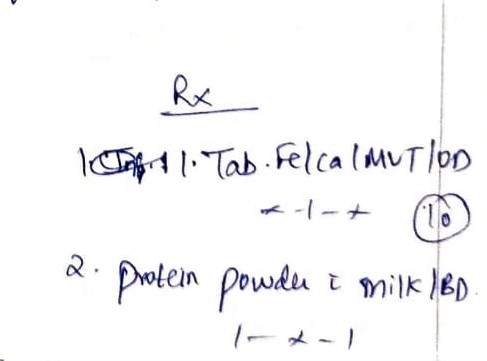 Rx
1. Tab. Fe/Ca/MVT/OD
x-1-x 10
2. Protein powder c milk/BD.
1-x-1